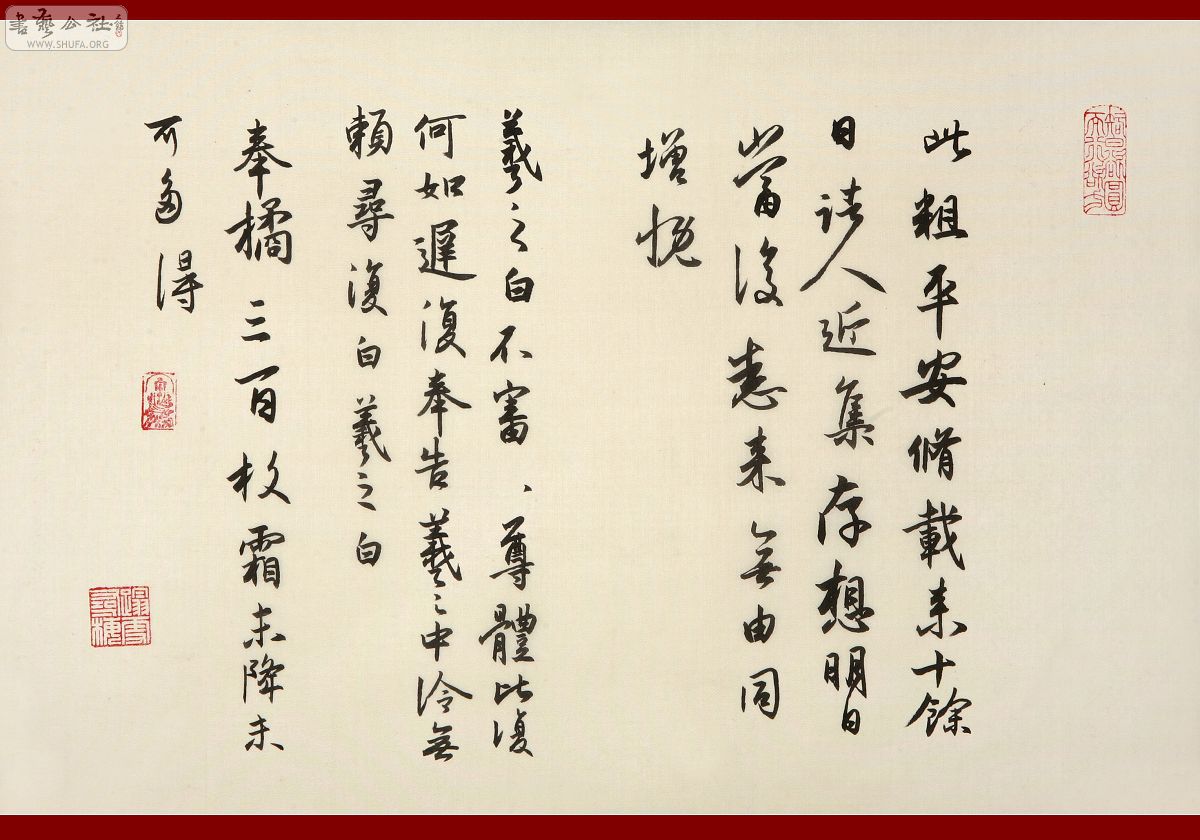 書藝公社
WWW.SHUFA.ORG
此粗平安脩載来十餘
日諸人近集存想明日
當復悉来無由同
增慨
羲之白不審、尊體比復
何如遲復奉告羲之中冷無
賴尋復白羲之白
奉橘三百枚霜未降未
可多得